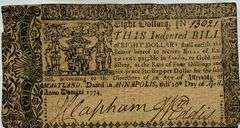 Eight Dollars. N 13021
THIS Indented BILL
of EIGHT DOLLARS shall entitle the
Bearer hereof to receive BILLS of EX-
CHANGE payable in London, or Gold and
Silver, at the Rate of Four Shillings and
Six-pence Sterling per Dollar for the
said Bill, according to the Directions of an Act of Assembly of
MARYLAND. Dated in ANNAPOLIS, this 10th Day of April,
Anno Domini 1774.
J Clapham